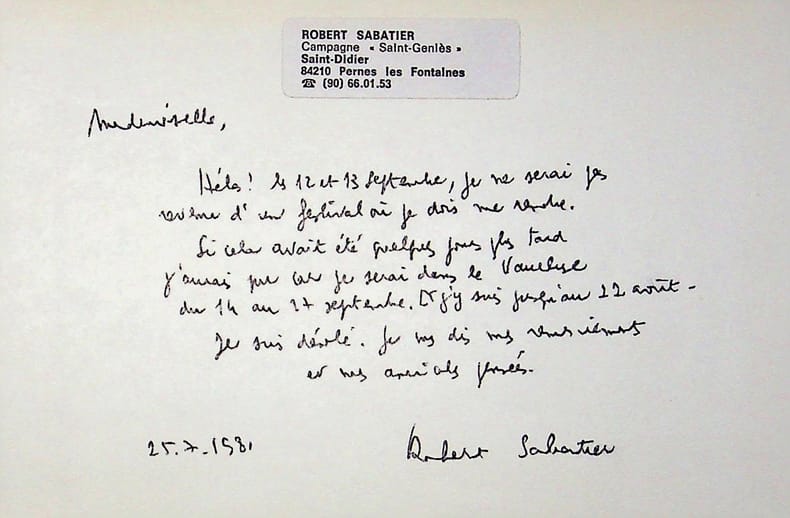 ROBERT SABATIER
Campagne « Saint-Geniès »
Saint-Didier
84210 Pernes les Fontaines
☎ (90) 66.01.53
Mademoiselle,
Hélas! les 12 et 13 septembre, je ne serai pas
revenu d'un festival où je dois me rendre.
Si cela avait été quelques jours plus tard
j'aurais pu car je serai dans le Vaucluse
du 14 au 27 septembre. Et j'y suis jusqu'au 22 août -
Je suis désolé. Je vous dis mes remerciements
et mes amicales pensées.
25.7.1981
Robert Sabatier